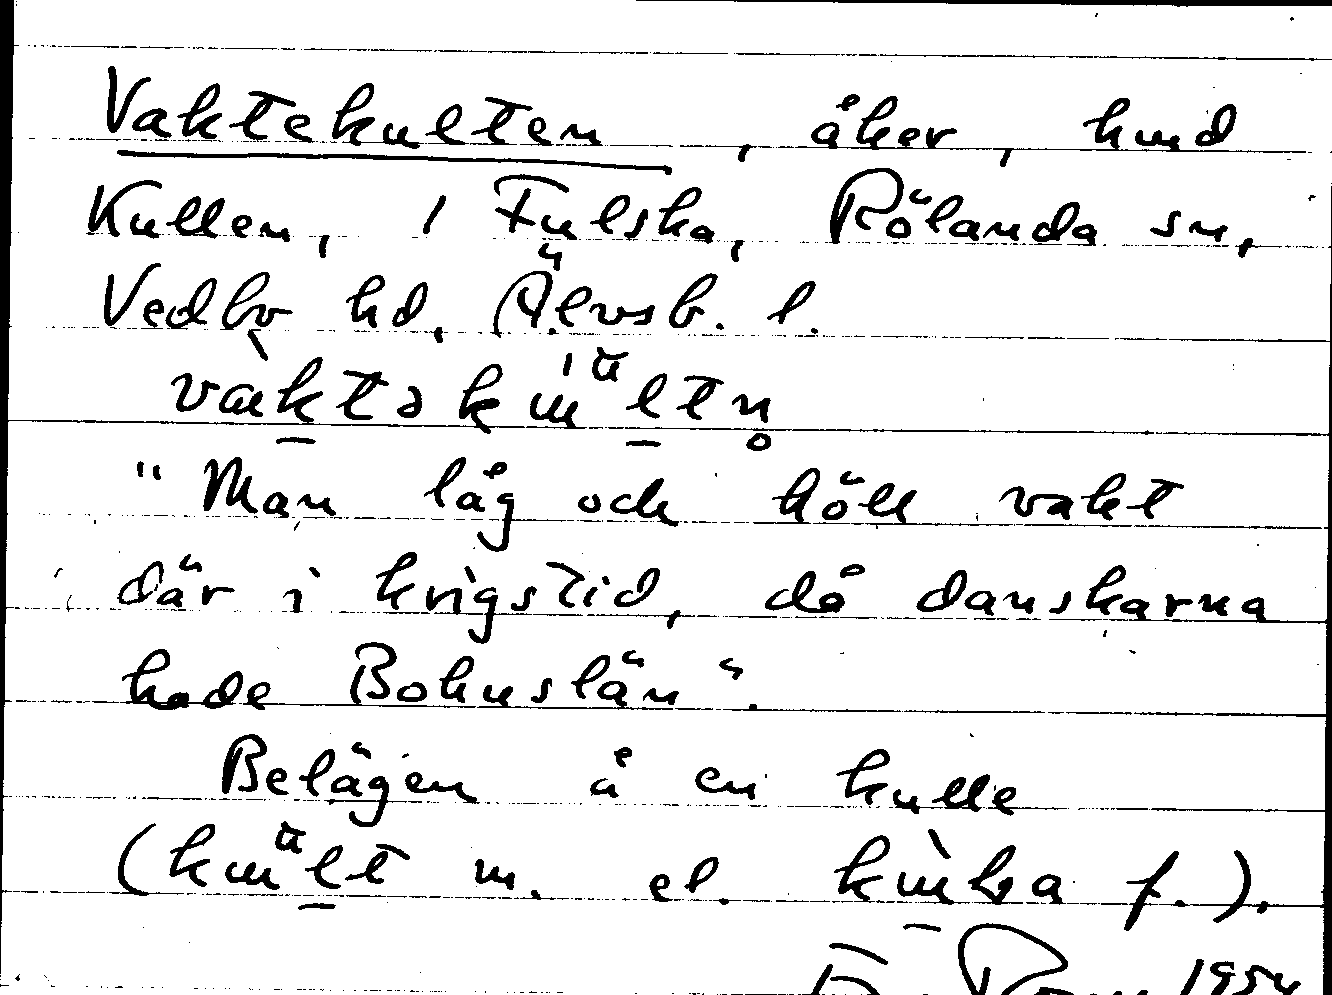 Vaktekulten, åker, hmd
Kullen, i Fulska, Rölanda sn,
Vedbo hd, Älvsb. l.
"Man låg och höll vakt
där i krigstid, då danskarna
hade Bohuslän".
Belägen å en kulle
m. el. f.).
1954